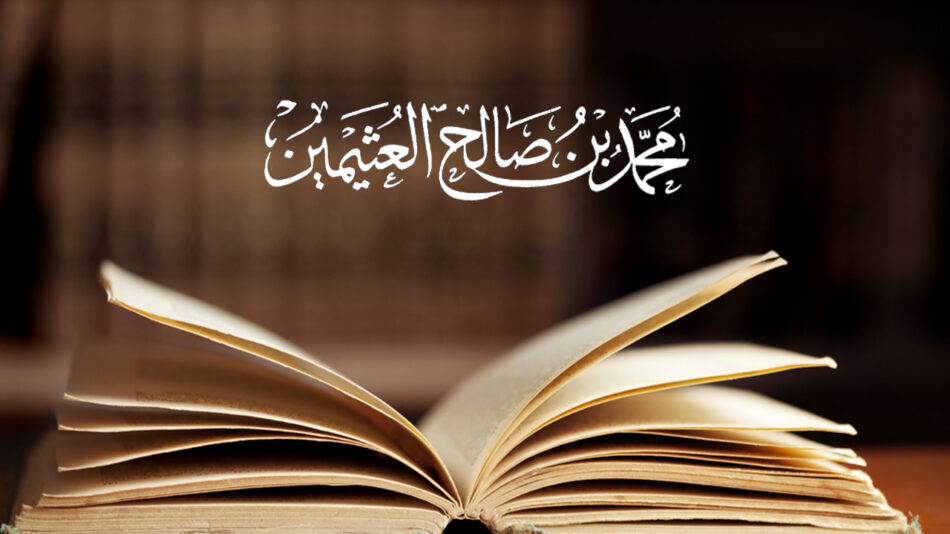 مُحَمَّد بِنُ صَالِح العُثَيمِين